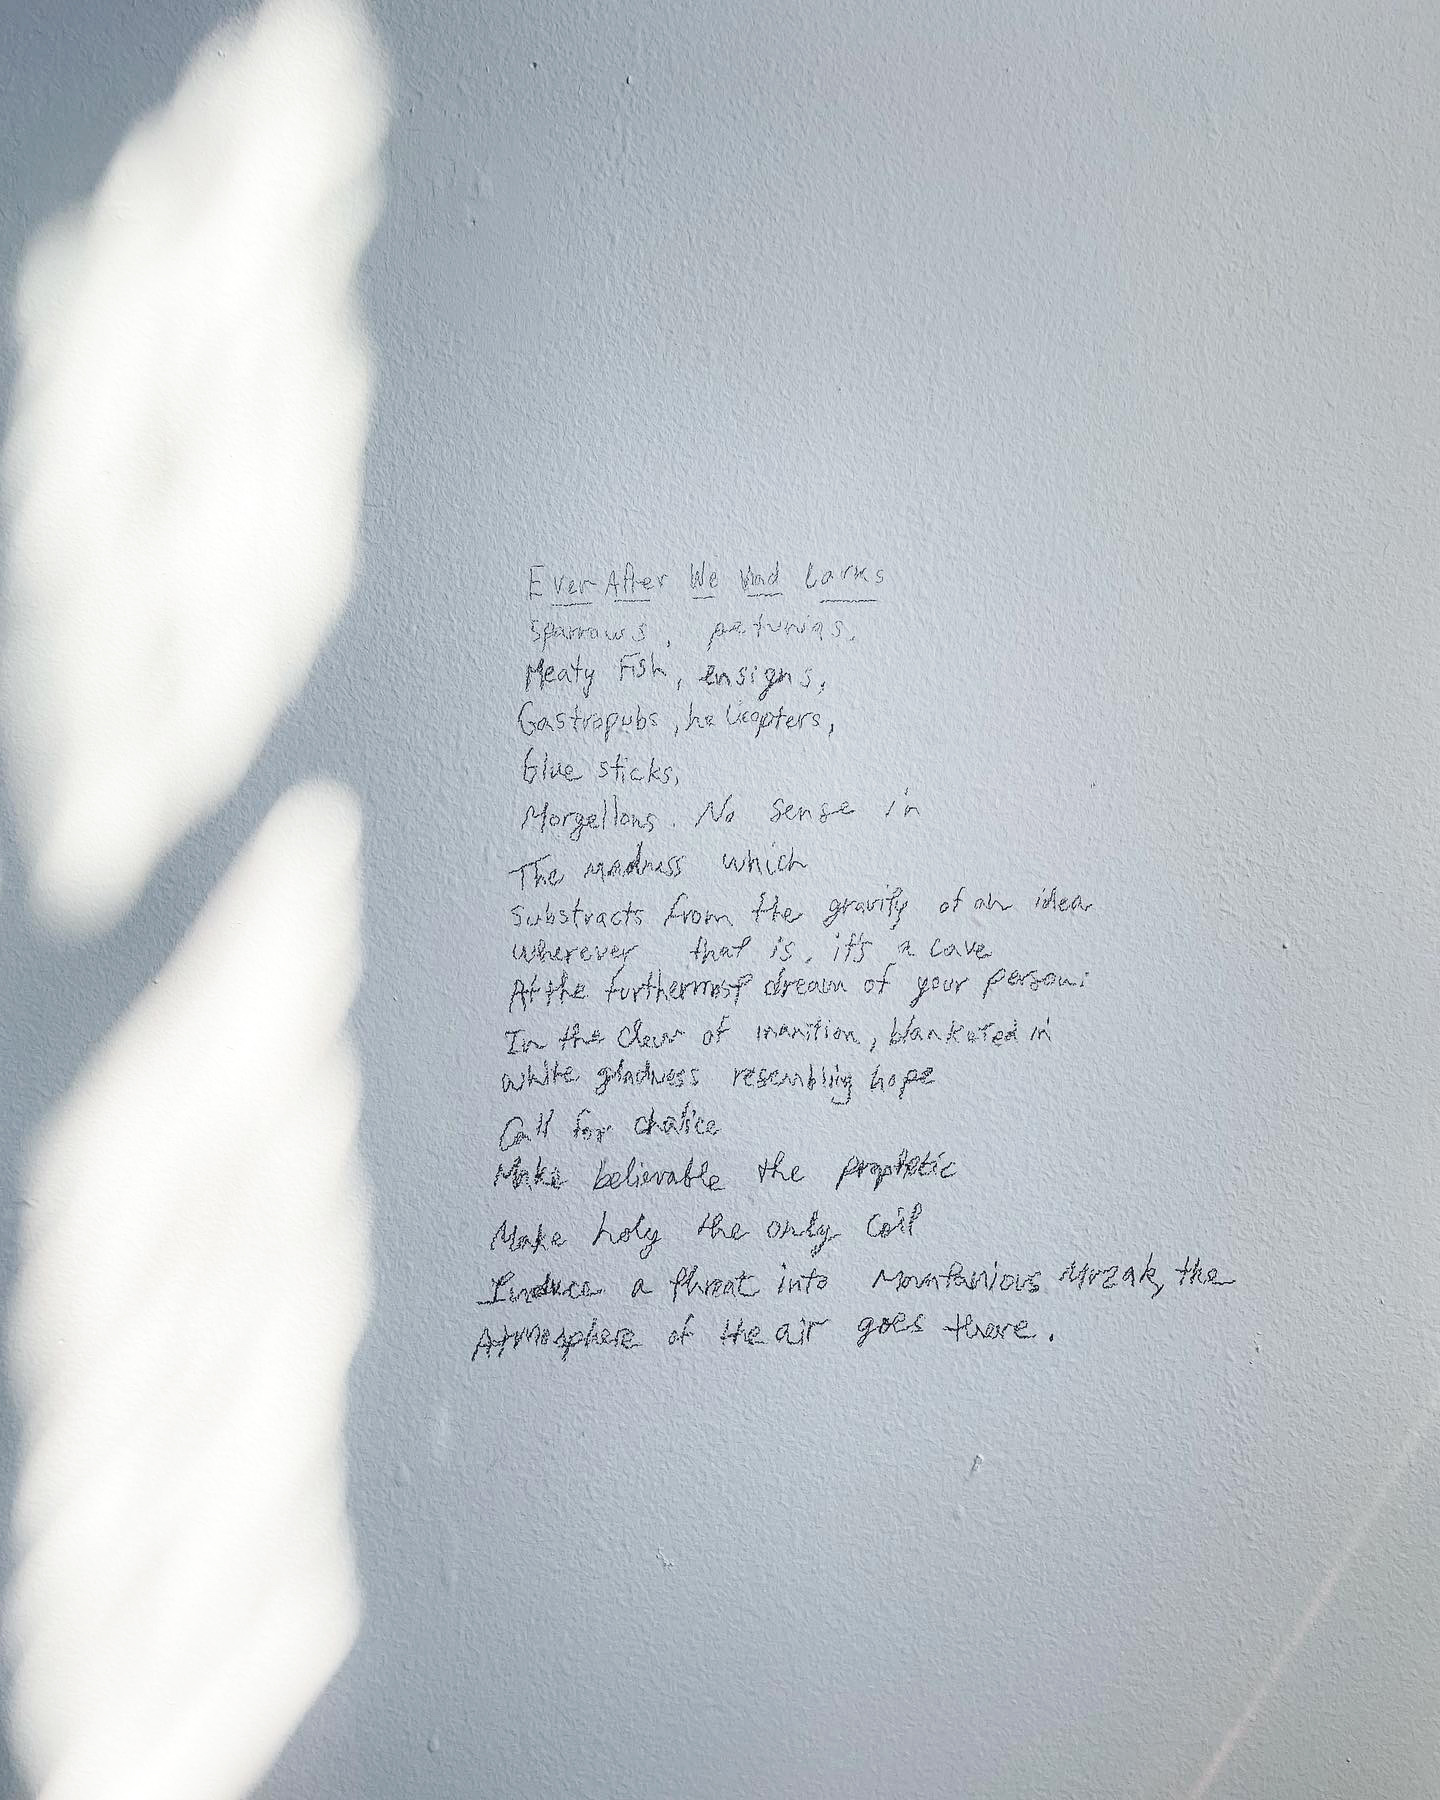 Ever After We Had Larks
Sparrows, petunias,
Meaty Fish, ensigns,
Gastropubs, helicopters,
Glue sticks,
Morgellons. No sense in
The madness which
Substracts from the gravity of an idea
wherever that is, it's a cave
At the furthermost dream of your person:
In the clear of inanition, blanketed in
white gladness resembling hope
Call for chalice
Make believable the prophetic
Make holy the only coil
Induce a threat into Mountanious the
Atmosphere of the air goes there.